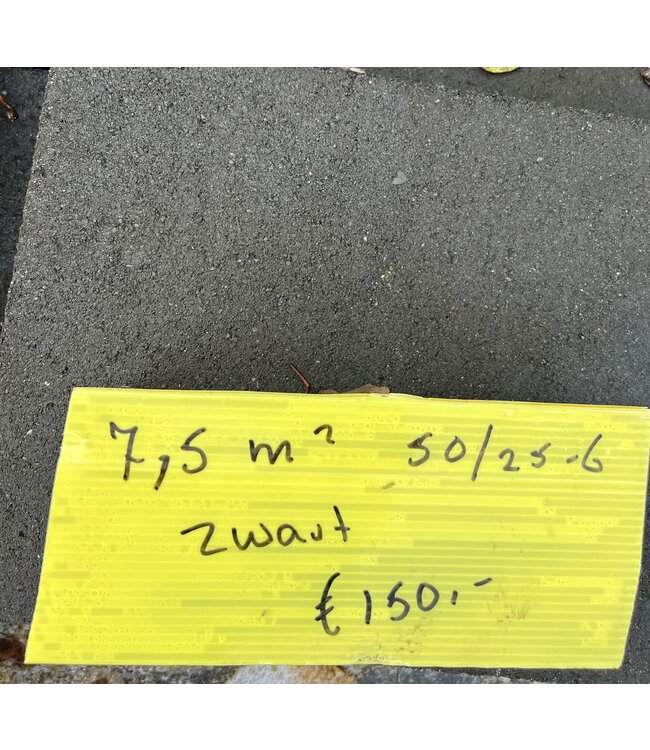 7,5 m² 50/25-6
zwart
€150,-